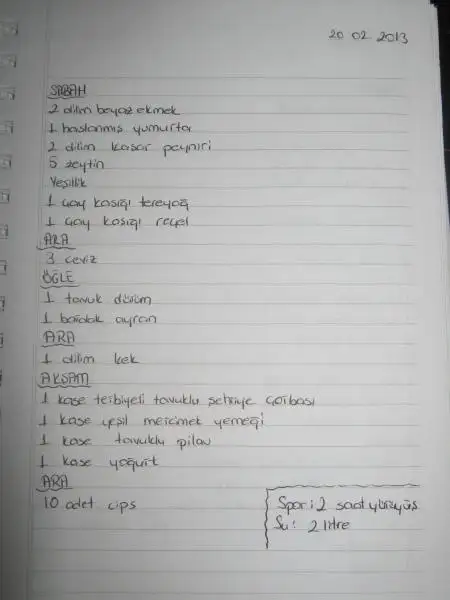 20 02 2013
SABAH
2 dilim beyaz ekmek
1 haşlanmış yumurta
2 dilim kaşar peyniri
5 zeytin
Yeşillik
1 çay kaşığı tereyağ
1 çay kaşığı reçel
ARA
3 ceviz
ÖĞLE
1 tavuk dürüm
1 bardak ayran
ARA
1 dilim kek
AKŞAM
1 kase terbiyeli tavuklu şehriye çorbası
1 kase yeşil mercimek yemeği
1 kase tavuklu pilav
1 kase yoğurt
ARA
10 adet cips
Spor: 2 saat yürüyüş
Su: 2 litre